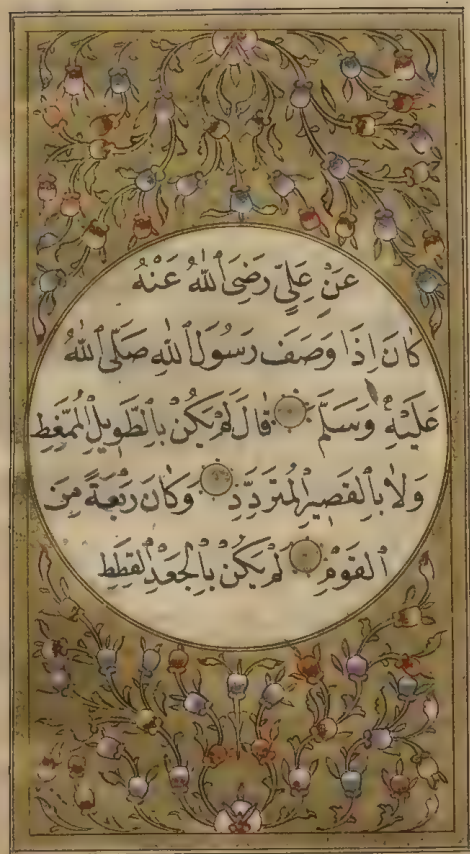 عَنْ عَلِيٍّ رَضِيَ اللّٰهُ عَنْهُ
كَانَ اِذَا وَصَفَ رَسُولَ اللّٰهِ صَلَّى اللّٰهُ
عَلَيْهِ وَسَلَّمَ قَالَ لَمْ يَكُنْ بِالطَّوِيلِ الْمُمَّغِطِ
وَلَا بِالْقَصِيرِ الْمُتَرَدِّدِ وَكَانَ رَبْعَةً مِنَ
الْقَوْمِ لَمْ يَكُنْ بِالْجَعْدِ الْقَطَطِ